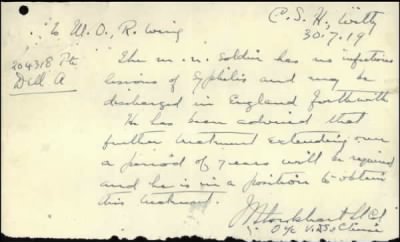 C.S.H, Witly
30.7.19
To M.O, R. Wing
204318 Pte
Dell A
The m. n. soldier has no infectious
lesions of Syphilis and may be
discharged in England forthwith
He has been advised that
further treatment extending over
a period of 2 years will be required
and he is in a position to obtain
this treatment.
O/c V.D.S Clinic